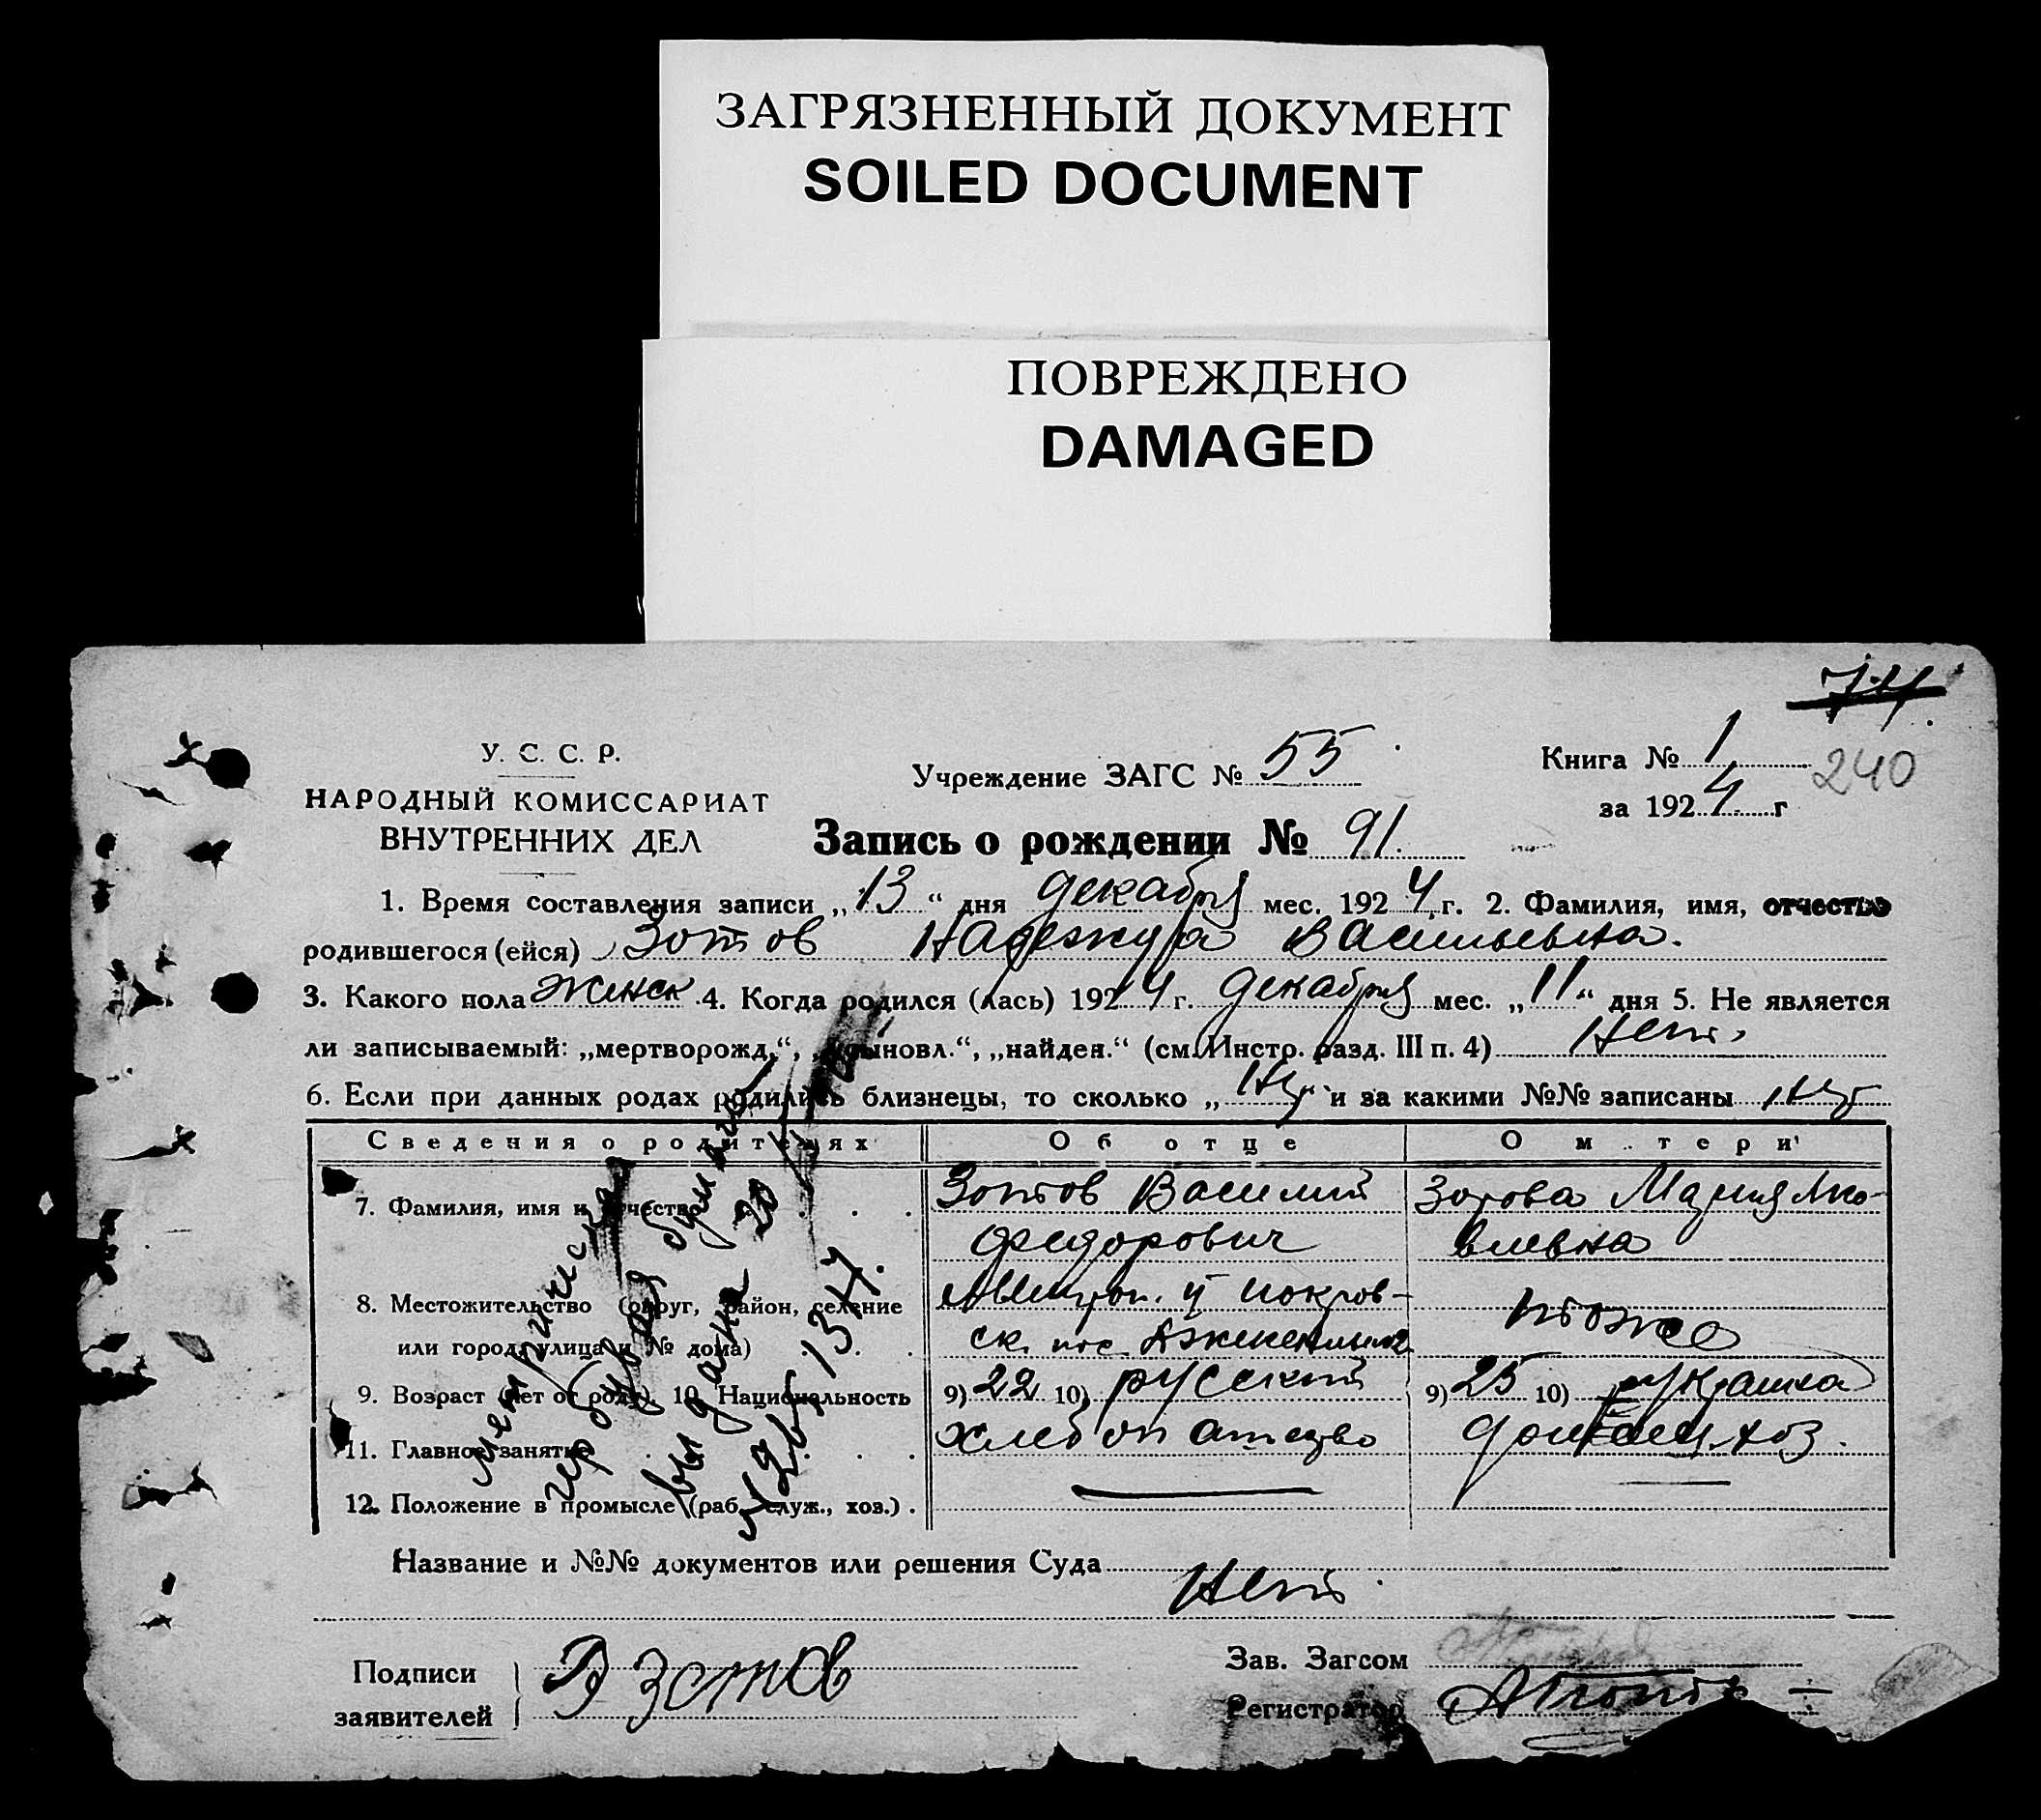 ЗАГРЯЗНЕННЫЙ ДОКУМЕНТ
SOILED DOCUMENT
ПОВРЕЖДЕНО
DAMAGED
74.
У. С. С. Р.
НАРОДНЫЙ КОМИССАРИАТ
ВНУТРЕННИХ ДЕЛ
Учреждение ЗАГС № 55
Книга № 1
240
за 1924 г
Запись о рождении № 91.
1. Время составления записи „13“ дня декабря мес. 1924 г. 2. Фамилия, имя, отчество
родившегося (ейся) Зотов Надежда Васильевна.
3. Какого пола женск 4. Когда родился (лась) 1924 г. декабря мес. „11“ дня 5. Не является
ли записываемый: „мертворожд.“, „усыновл.“, „найден.“ (см. Инстр. разд. III п. 4) Нет
6. Если при данных родах родились близнецы, то сколько „ “ и за какими №№ записаны
Сведения о родителях Об отце О м тери
7. Фамилия, имя и отчество Зотов Василий Зотова Мария
Федорович
8. Местожительство (округ, район, селение покров-
или город, улица и № дома) ск. пос. тоже
9. Возраст (лет от роду). 10. Национальность 9) 22 10) русский 9) 25 10)
11. Главное занятие хлебопашество хоз.
12. Положение в промысле (раб., служ., хоз.)
выдана
Название и №№ документов или решения Суда
Нет
Подписи
заявителей
В Зотов
Зав. Загсом
Регистратор